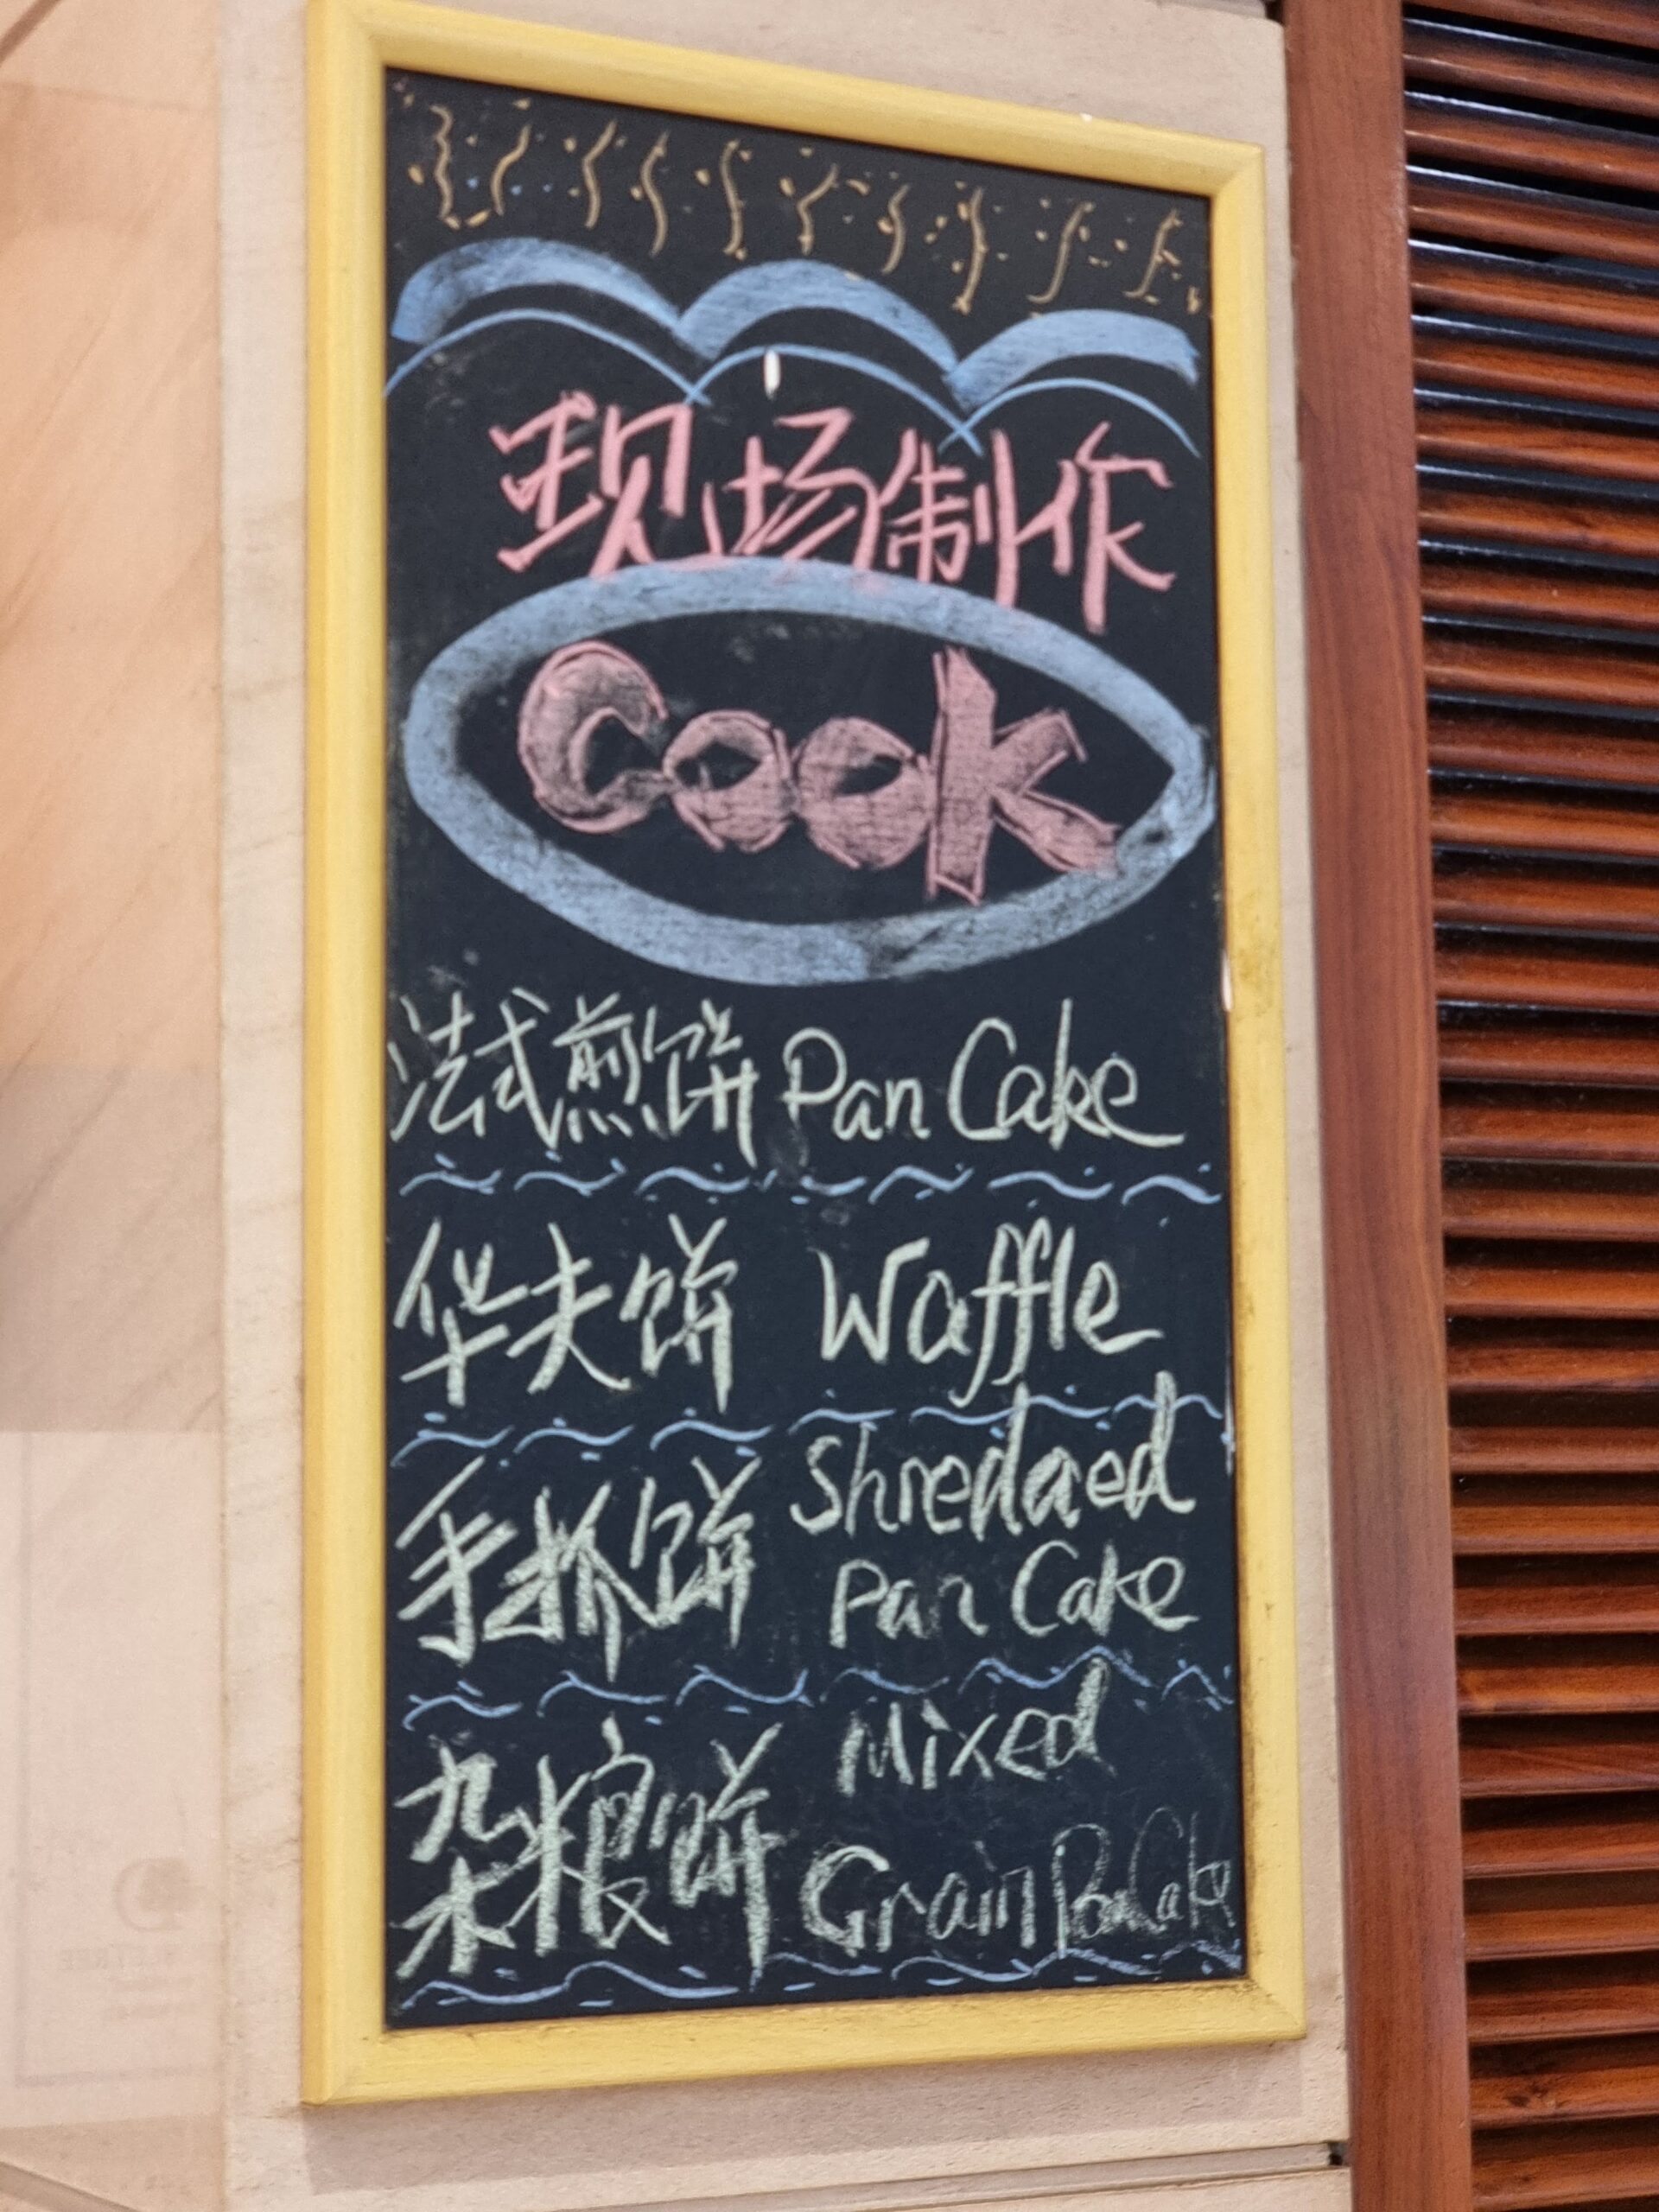 现场制作
Cook
法式煎饼 Pan Cake
华夫饼 Waffle
手抓饼 Shredaed
Pan Cake
杂粮饼 Mixed
Grain PanCake